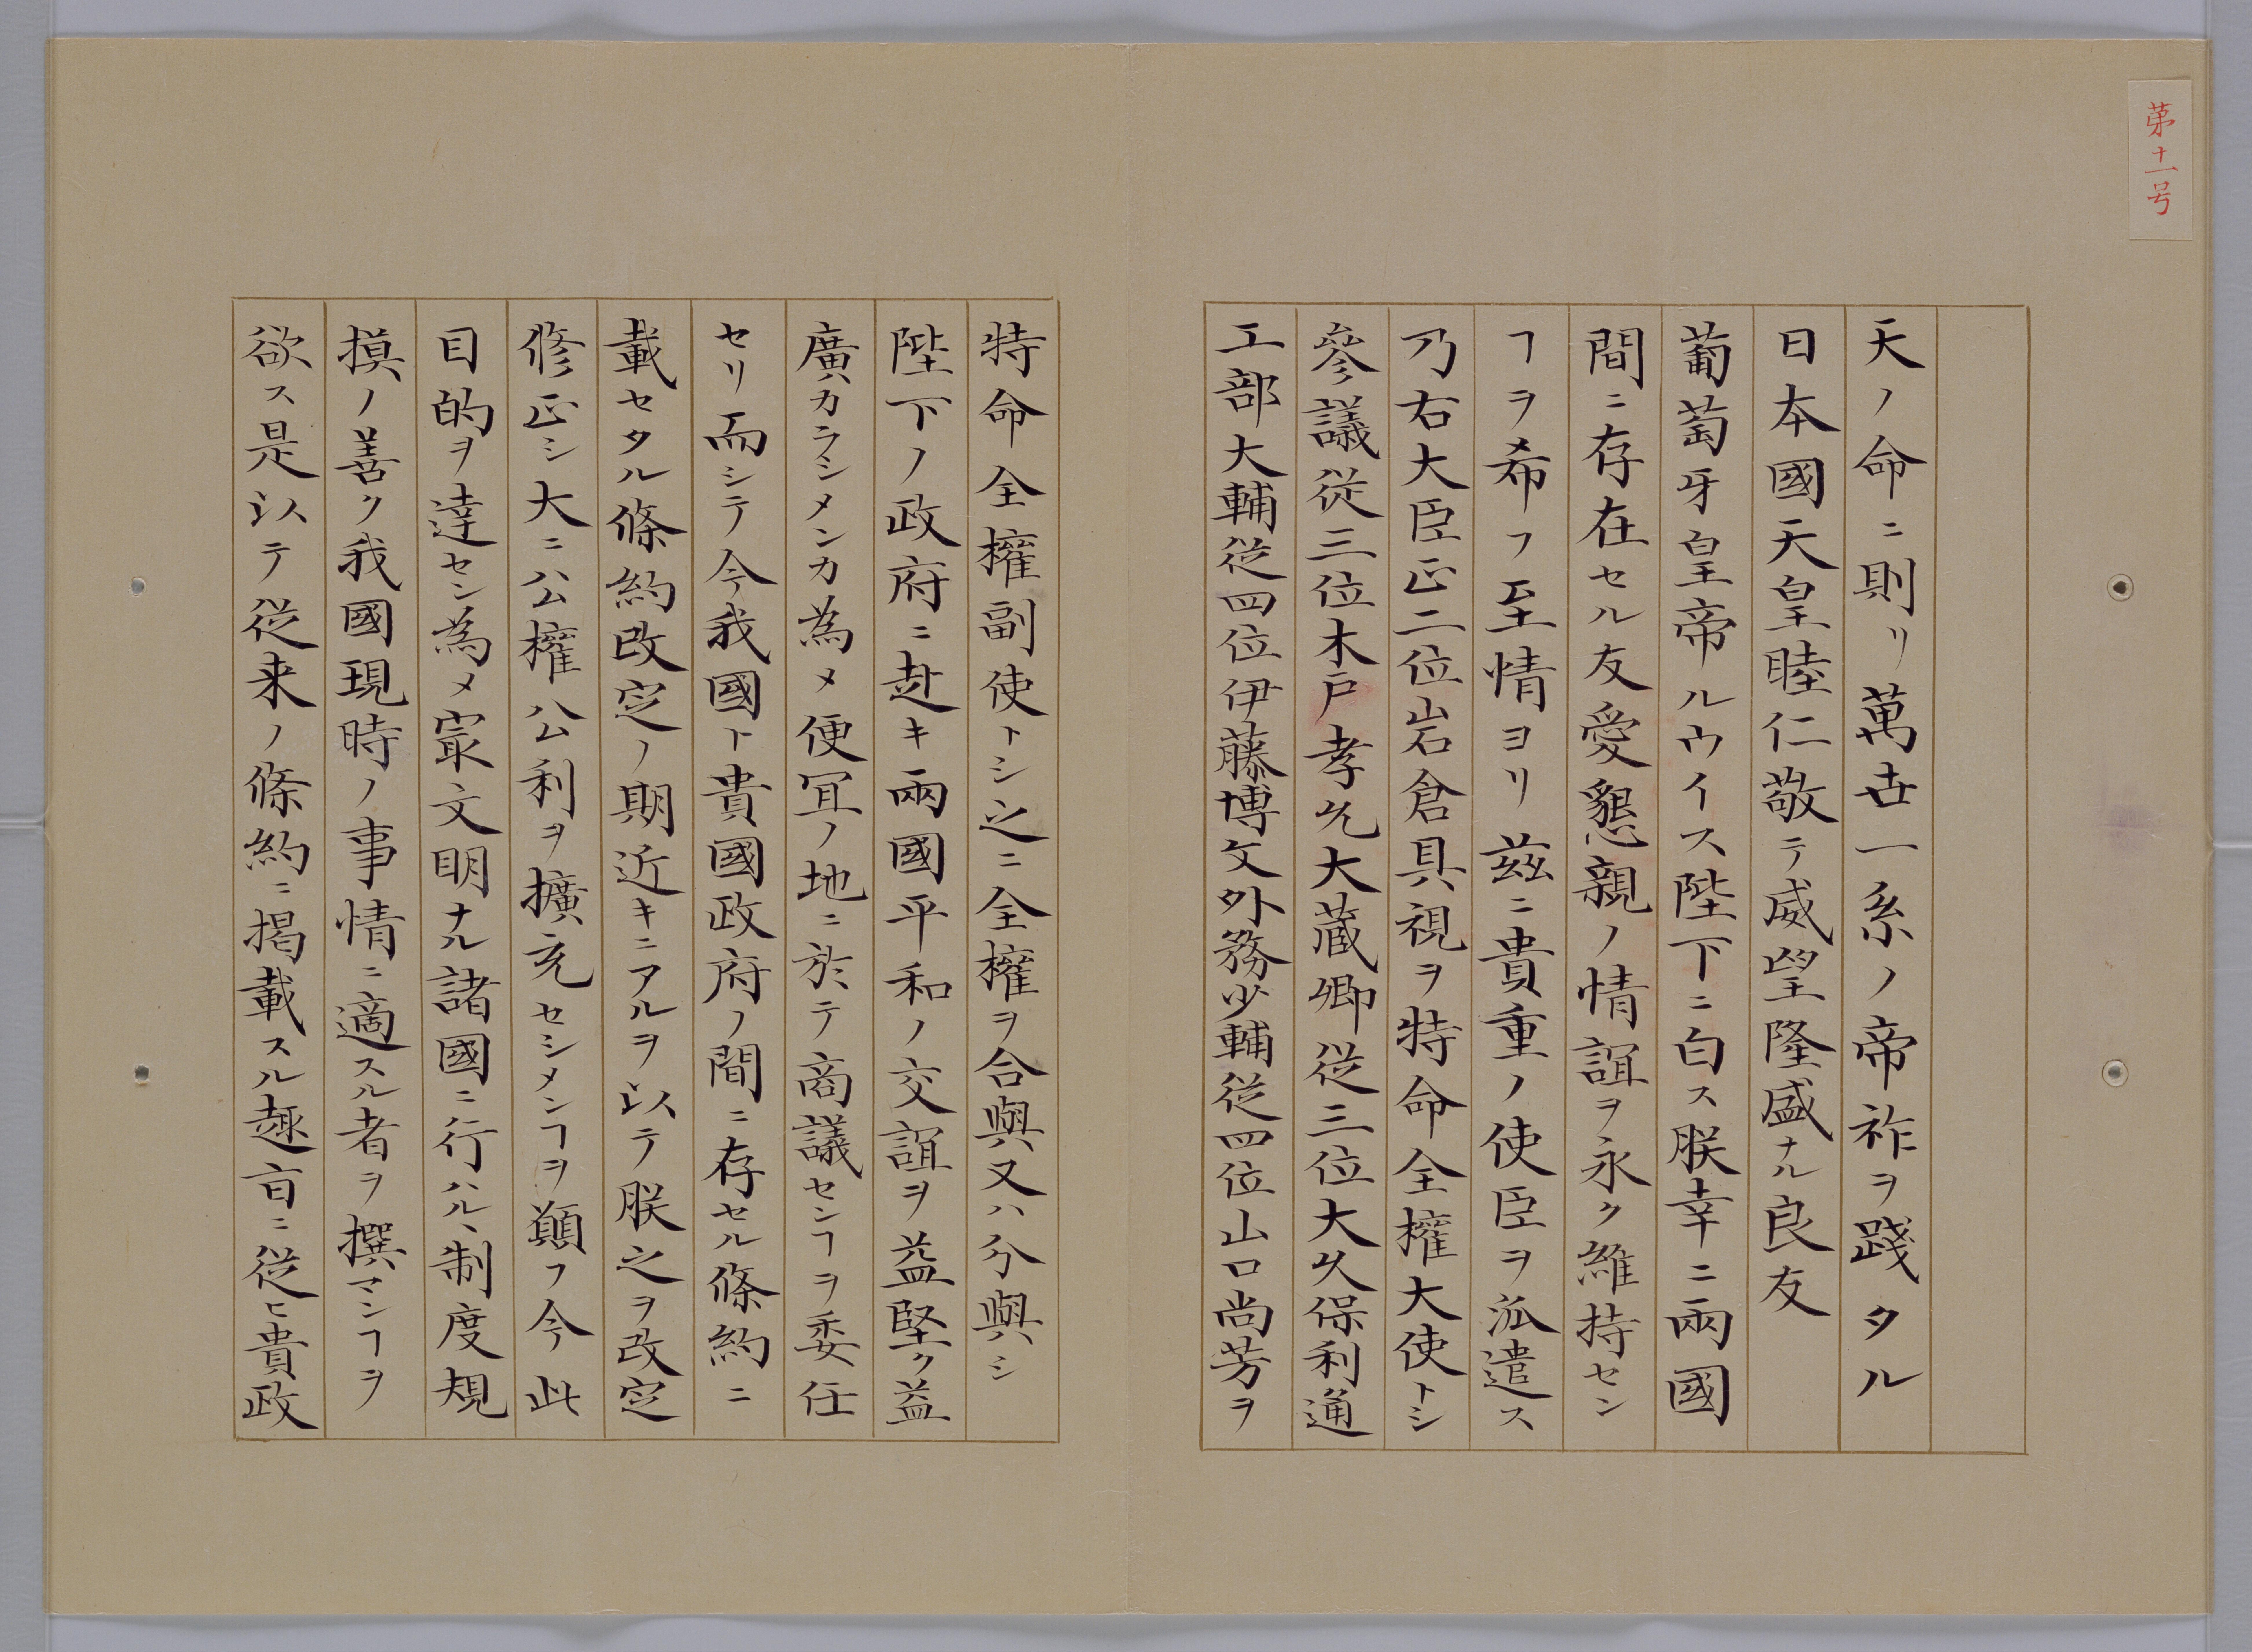 第十一号
天ノ命ニ則リ萬世一系ノ帝祚ヲ踐タル
日本國天皇睦仁敬テ威望隆盛ナル良友
葡萄牙皇帝ルウイス陛下ニ白ス朕幸ニ兩國
間ニ存在セル友愛懇親ノ情誼ヲ永ク維持セン
ヿヲ希フ至情ヨリ茲ニ貴重ノ使臣ヲ派遣ス
乃右大臣正二位岩倉具視ヲ特命全權大使トシ
參議従三位木戸孝允大蔵卿従三位大久保利通
工部大輔従四位伊藤博文外務少輔従四位山口尚芳ヲ
特命全權副使トシ之ニ全權ヲ合與又ハ分與シ
陛下ノ政府ニ赴キ兩國平和ノ交誼ヲ益堅ク益
廣カラシメンカ為メ便冝ノ地ニ於テ商議センヿヲ委任
セリ而シテ今我國ト貴國政府ノ間ニ存セル條約ニ
載セタル條約改定ノ期近キニアルヲ以テ朕之ヲ改定
修正シ大ニ公權公利ヲ擴充セシメンヿヲ顛フ今此
目的ヲ達セン為メ㝡文明ナル諸國ニ行ハル丶制度規
摸ノ善ク我國現時ノ事情ニ適スル者ヲ撰マンヿヲ
欲ス是以テ従来ノ條約ニ掲載スル趣旨ニ従ヒ貴政